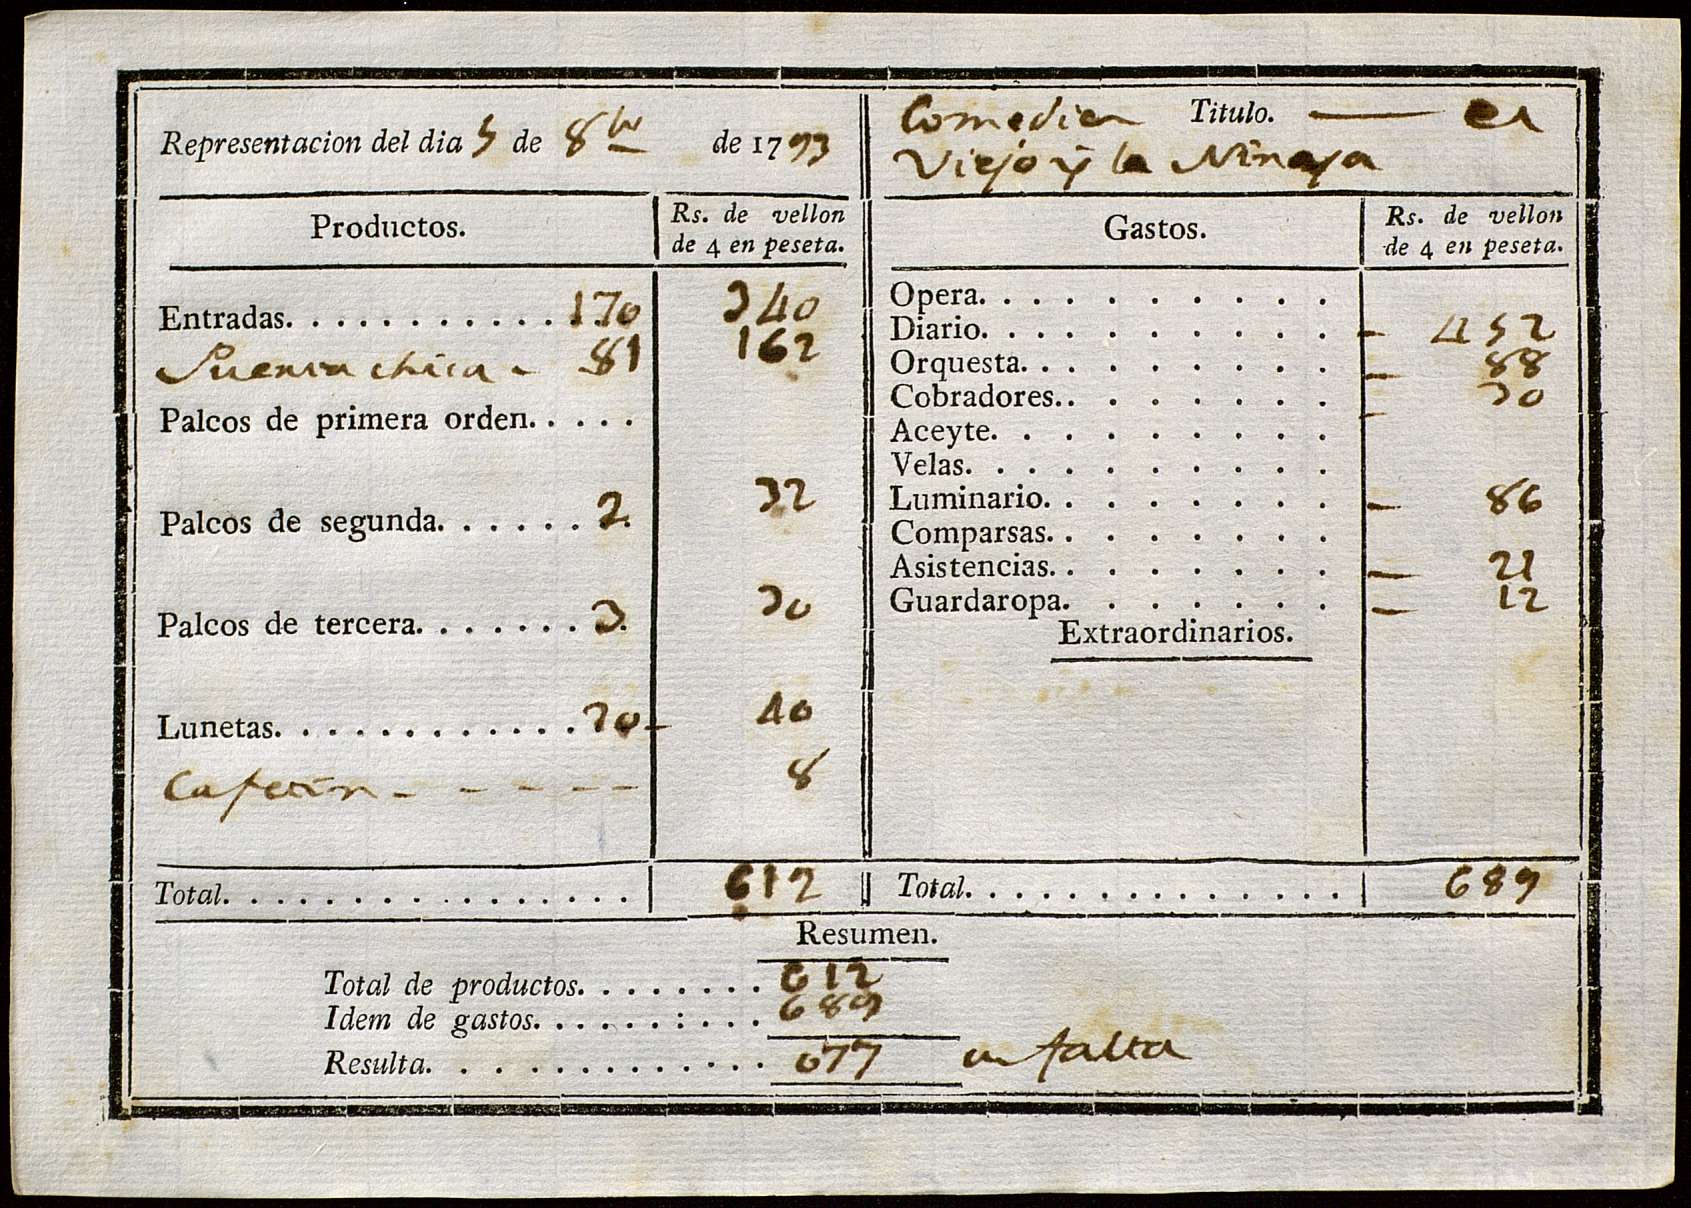 Representacion del dia 5 de 8bre de 1793
Comedia Titulo. — el
Viejo y la Niña
Productos. Rs. de vellon de 4 en peseta.
Entradas. . . . . . . . . . . 170 340
Puerta chica - 81 162
Palcos de primera orden. . . . .
Palcos de segunda. . . . . . 2. 32
Palcos de tercera. . . . . . . 3. 30
Lunetas. . . . . . . . . . . . 20 - 40
Cafetin - - - - - - 8
Total. . . . . . . . . . . . . . . . 612
Gastos. Rs. de vellon de 4 en peseta.
Opera. . . . . . . . . .
Diario. . . . . . . . . . - 452
Orquesta. . . . . . . . . - 88
Cobradores. . . . . . . . - 30
Aceyte. . . . . . . . . .
Velas. . . . . . . . . . .
Luminario. . . . . . . . - 86
Comparsas. . . . . . . .
Asistencias. . . . . . . . - 21
Guardaropa. . . . . . . - 12
Extraordinarios.
Total. . . . . . . . . . . . . . . 689
Resumen.
Total de productos. . . . . . . . 612
Idem de gastos. . . . . . : . . . 689
Resulta. . . . . . . . . . . . . 077 en falta